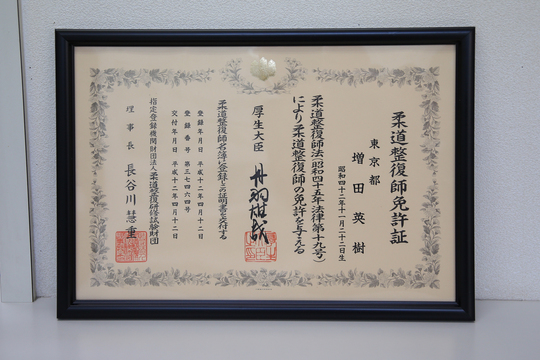 柔道整復師免許証
東京都
増田英樹
昭和四十二年十一月二十二日生
柔道整復師法(昭和四十五年法律第十九号)
により柔道整復師の免許を与える
厚生大臣 丹羽雄哉
柔道整復師名簿に登録し この証明書を交付する
登録年月日 平成十二年四月十二日
登録番号 第三七四六四号
交付年月日 平成十二年四月十二日
指定登録機関財団法人柔道整復研修試験財団
理事長 長谷川慧重